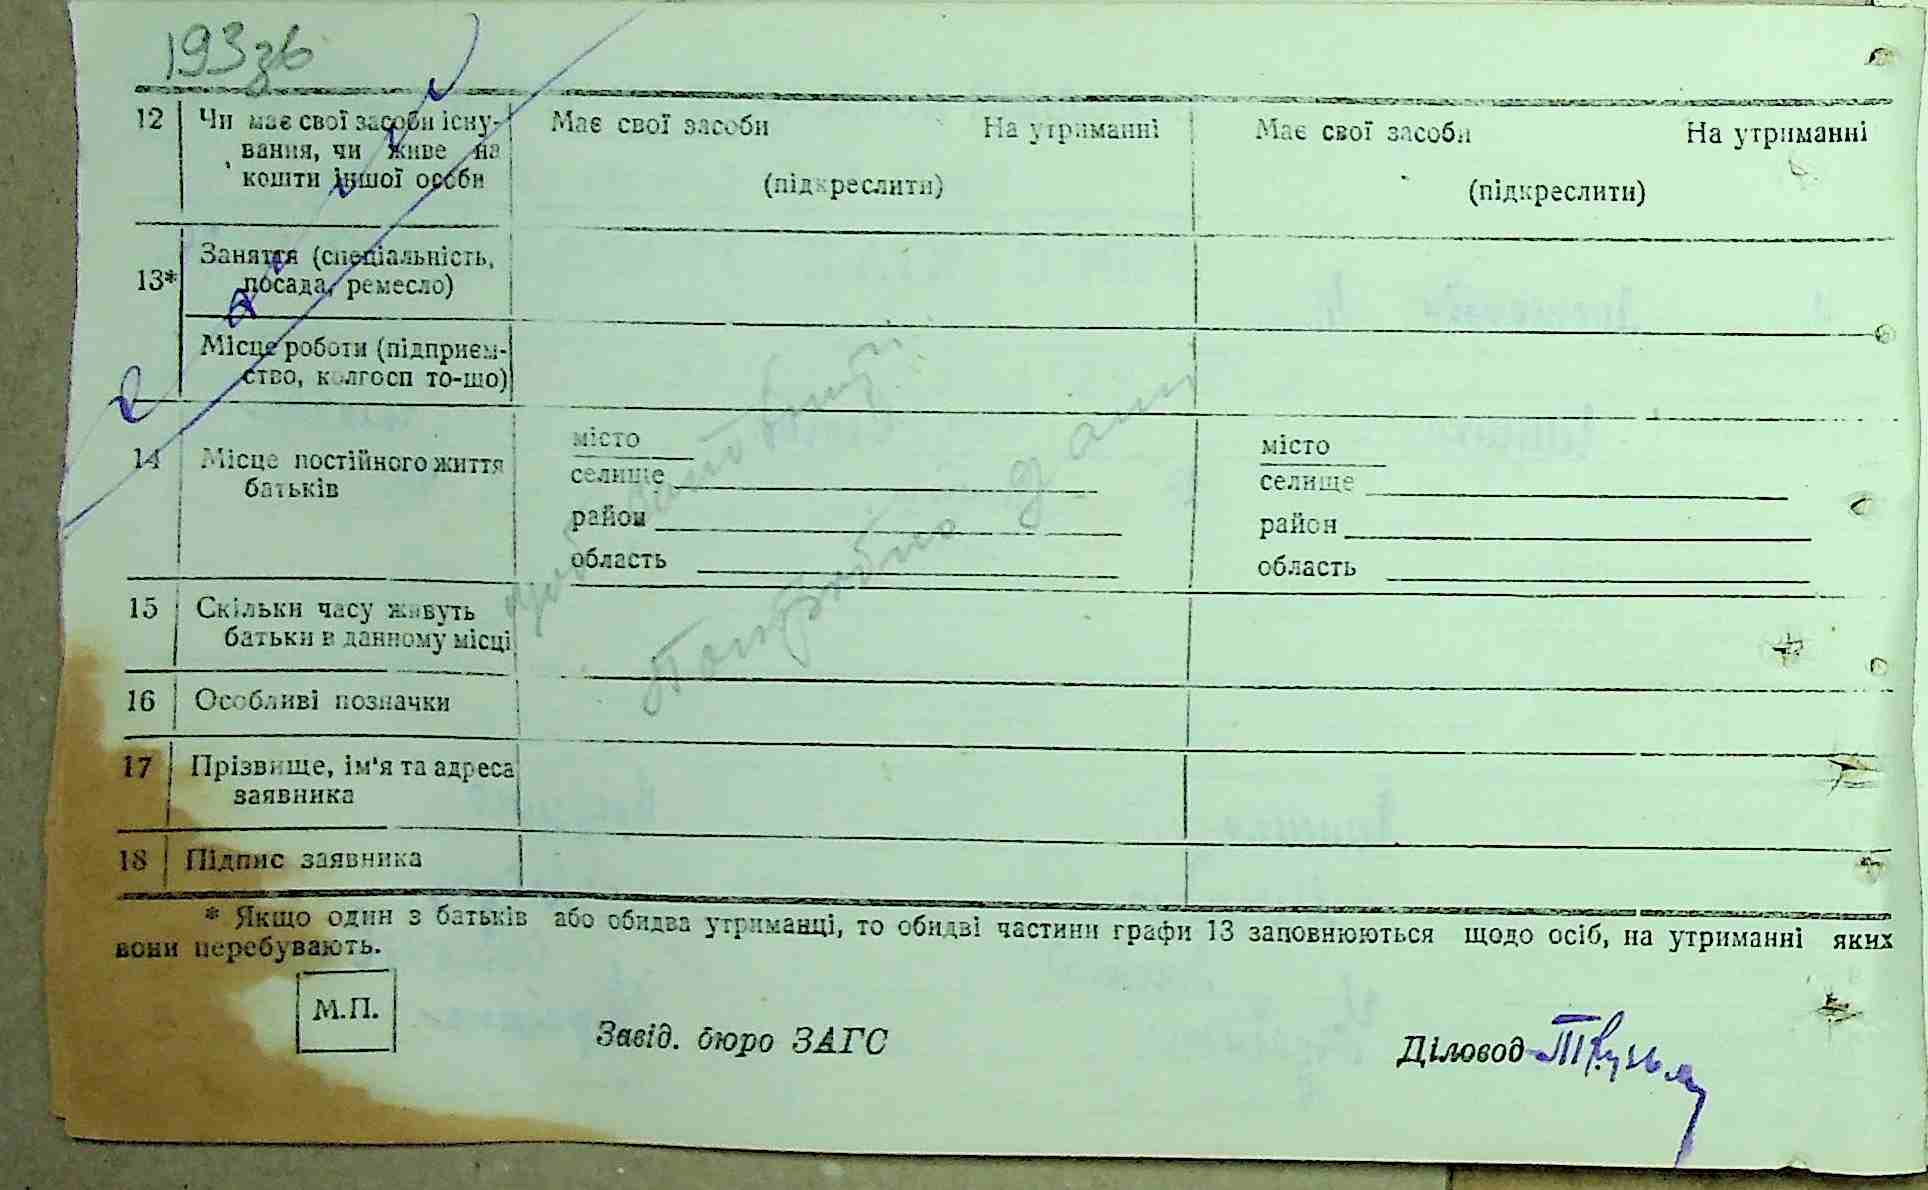 193зв
12 Чи має свої засоби існу- Має свої засоби На утриманні Має свої засоби На утриманні
вання, чи живе на
кошти іншої особи (підкреслити) (підкреслити)
13* Заняття (спеціальність,
посада, ремесло)
Місце роботи (підприєм-
ство, колгосп то-що)
14 Місце постійного життя
батьків
місто місто
селище селище
район район
область область
15 Скільки часу живуть
батьки в данному місці
16 Особливі позначки
17 Прізвище, ім'я та адреса
заявника
18 Підпис заявника
* Якщо один з батьків або обидва утриманці, то обидві частини графи 13 заповнюються щодо осіб, на утриманні яких
вони перебувають.
М.П.
Завід. бюро ЗАГС
Діловод